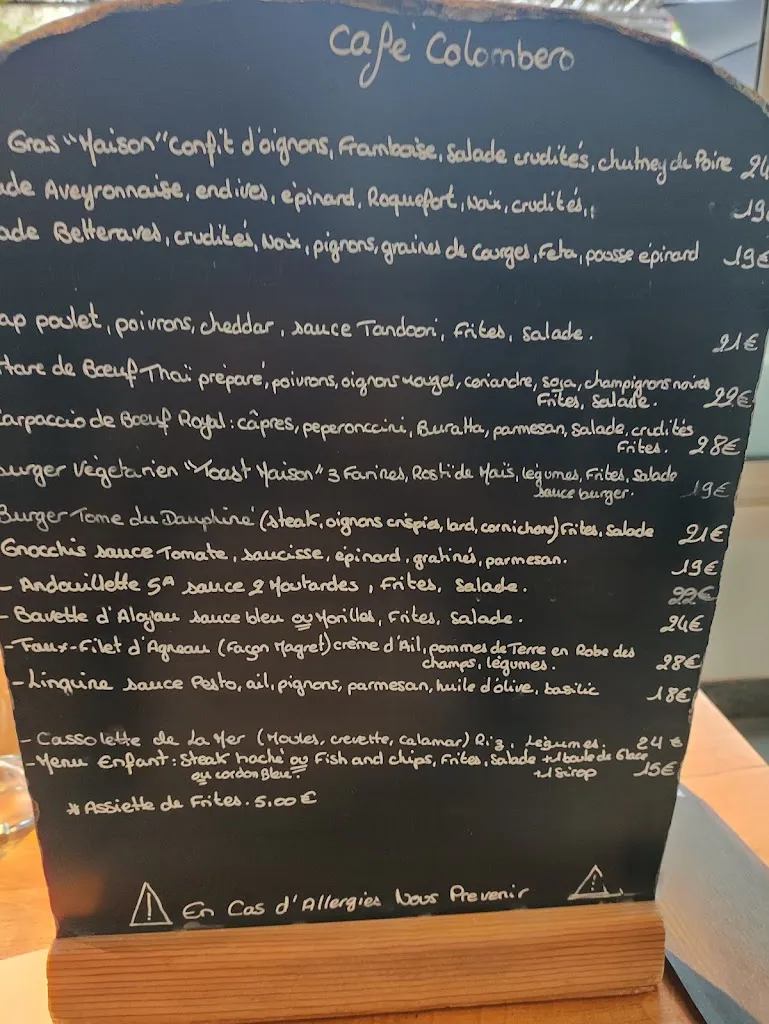 Café Colombero
Gras "Maison" confit d'oignons, Framboise, Salade crudités, chutney de Poire 24
ade Aveyronnaise, endives, épinard, Roquefort, Noix, crudités, 19
ade Betteraves, crudités, Noix, pignons, graines de Courges, Feta, pousse épinard 19€
ap poulet, poivrons, cheddar, sauce Tandoori, Frites, Salade. 21€
tare de Bœuf Thaï préparé, poivrons, oignons rouges, coriandre, soja, champignons noires
Frites, Salade. 22€
Carpaccio de Bœuf Royal : câpres, peperonccini, Buratta, parmesan, Salade, crudités
Frites. 28€
urger Végétarien "Toast Maison" 3 Farines, Rosti de Maïs, légumes, Frites, Salade
sauce burger. 19€
Burger Tome du Dauphiné (steak, oignons crispies, lard, cornichons) Frites, Salade 21€
Gnocchis sauce Tomate, saucisse, épinard, gratinés, parmesan. 19€
- Andouillette 5A sauce 2 Moutardes, Frites, Salade. 22€
- Bavette d'Aloyau sauce bleu ou Morilles, Frites, Salade. 24€
- Faux-Filet d'Agneau (Façon Magret) crème d'Ail, pommes de Terre en Robe des
champs, légumes. 28€
- Linguine sauce Pesto, ail, pignons, parmesan, huile d'olive, basilic 18€
- Cassolette de La Mer (Moules, crevette, calamar) Riz, Légumes. 24€
- Menu Enfant : Steak haché ou Fish and chips, Frites, Salade +1 boule de Glace
ou cordon Bleu. +1 Sirop 15€
* Assiette de Frites. 5,00€
En Cas d'Allergies Nous Prevenir